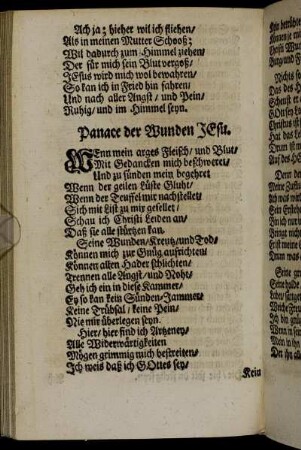 Ach ja; hieher wil ich fliehen/
Als in meinen Mutter Schooß;
Wil dadurch zum Himmel ziehen/
Der für mich sein Blut vergoß/
JEsus wird mich wol bewahren/
So kan ich in Fried hin fahren/
Und nach aller Angst/ und Pein/
Ruhig/ und im Himmel seyn.
Panace der Wunden JEsu.
WEnn mein arges Fleisch/ und Blut/
Mit Gedancken mich beschweret/
Und zu sünden mein begehret
Wenn der geilen Lüste Gluht/
Wenn der Teuffel mir nachstellet/
Sich mit List zu mir gesellet/
Schau ich Christi Leiden an/
Daß sie alle stürtzen kan.
Seine Wunden/ Kreutz/ und Tod/
Können mich zur Gnüg aufrichten/
Können allen Hader schlichten/
Trennen alle Angst/ und Noht/
Geh ich ein in diese Kammer/
Ey so kan kein Sünden-Jammer/
Keine Trübsal/ keine Pein/
Nie mir überlegen seyn.
Hier/ hier find ich Artzeney/
Alle Widerwärtigkeiten
Mögen grimmig mich bestreiten/
Ich weis daß ich GOttes sey/
Kein